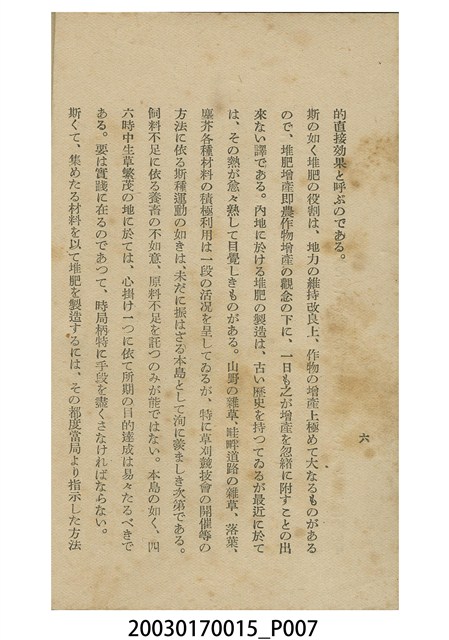 的直接効果と呼ぶのである。
斯の如く堆肥の役割は、地力の維持改良上、作物の增產上極めて大なるものがある
ので、堆肥增產卽農作物增產の觀念の下に、一日も之が增產を忽緖に附すことの出
來ない譯である。內地に於ける堆肥の製造は、古い歷史を持つてゐるが最近に於て
は、その熱が愈々熟して目覺しきものがある。山野の雜草、畦畔道路の雜草、落葉、
塵芥各種材料の積極利用は一段の活況を呈してゐるが、特に草刈競技會の開催等の
方法に依る斯種運動の如きは、未だに振はざる本島として洵に羨ましき次第である。
飼料不足に依る養畜の不如意、原料不足を託つのみが能ではない。本島の如く、四
六時中生草繁茂の地に於ては、心掛け一つに依て所期の目的達成は易々たるべきで
ある。要は實踐に在るのであつて、時局柄特に手段を盡くさなければならない。
斯くて、集めたる材料を以て堆肥を製造するには、その都度當局より指示した方法
六
20030170015_P007